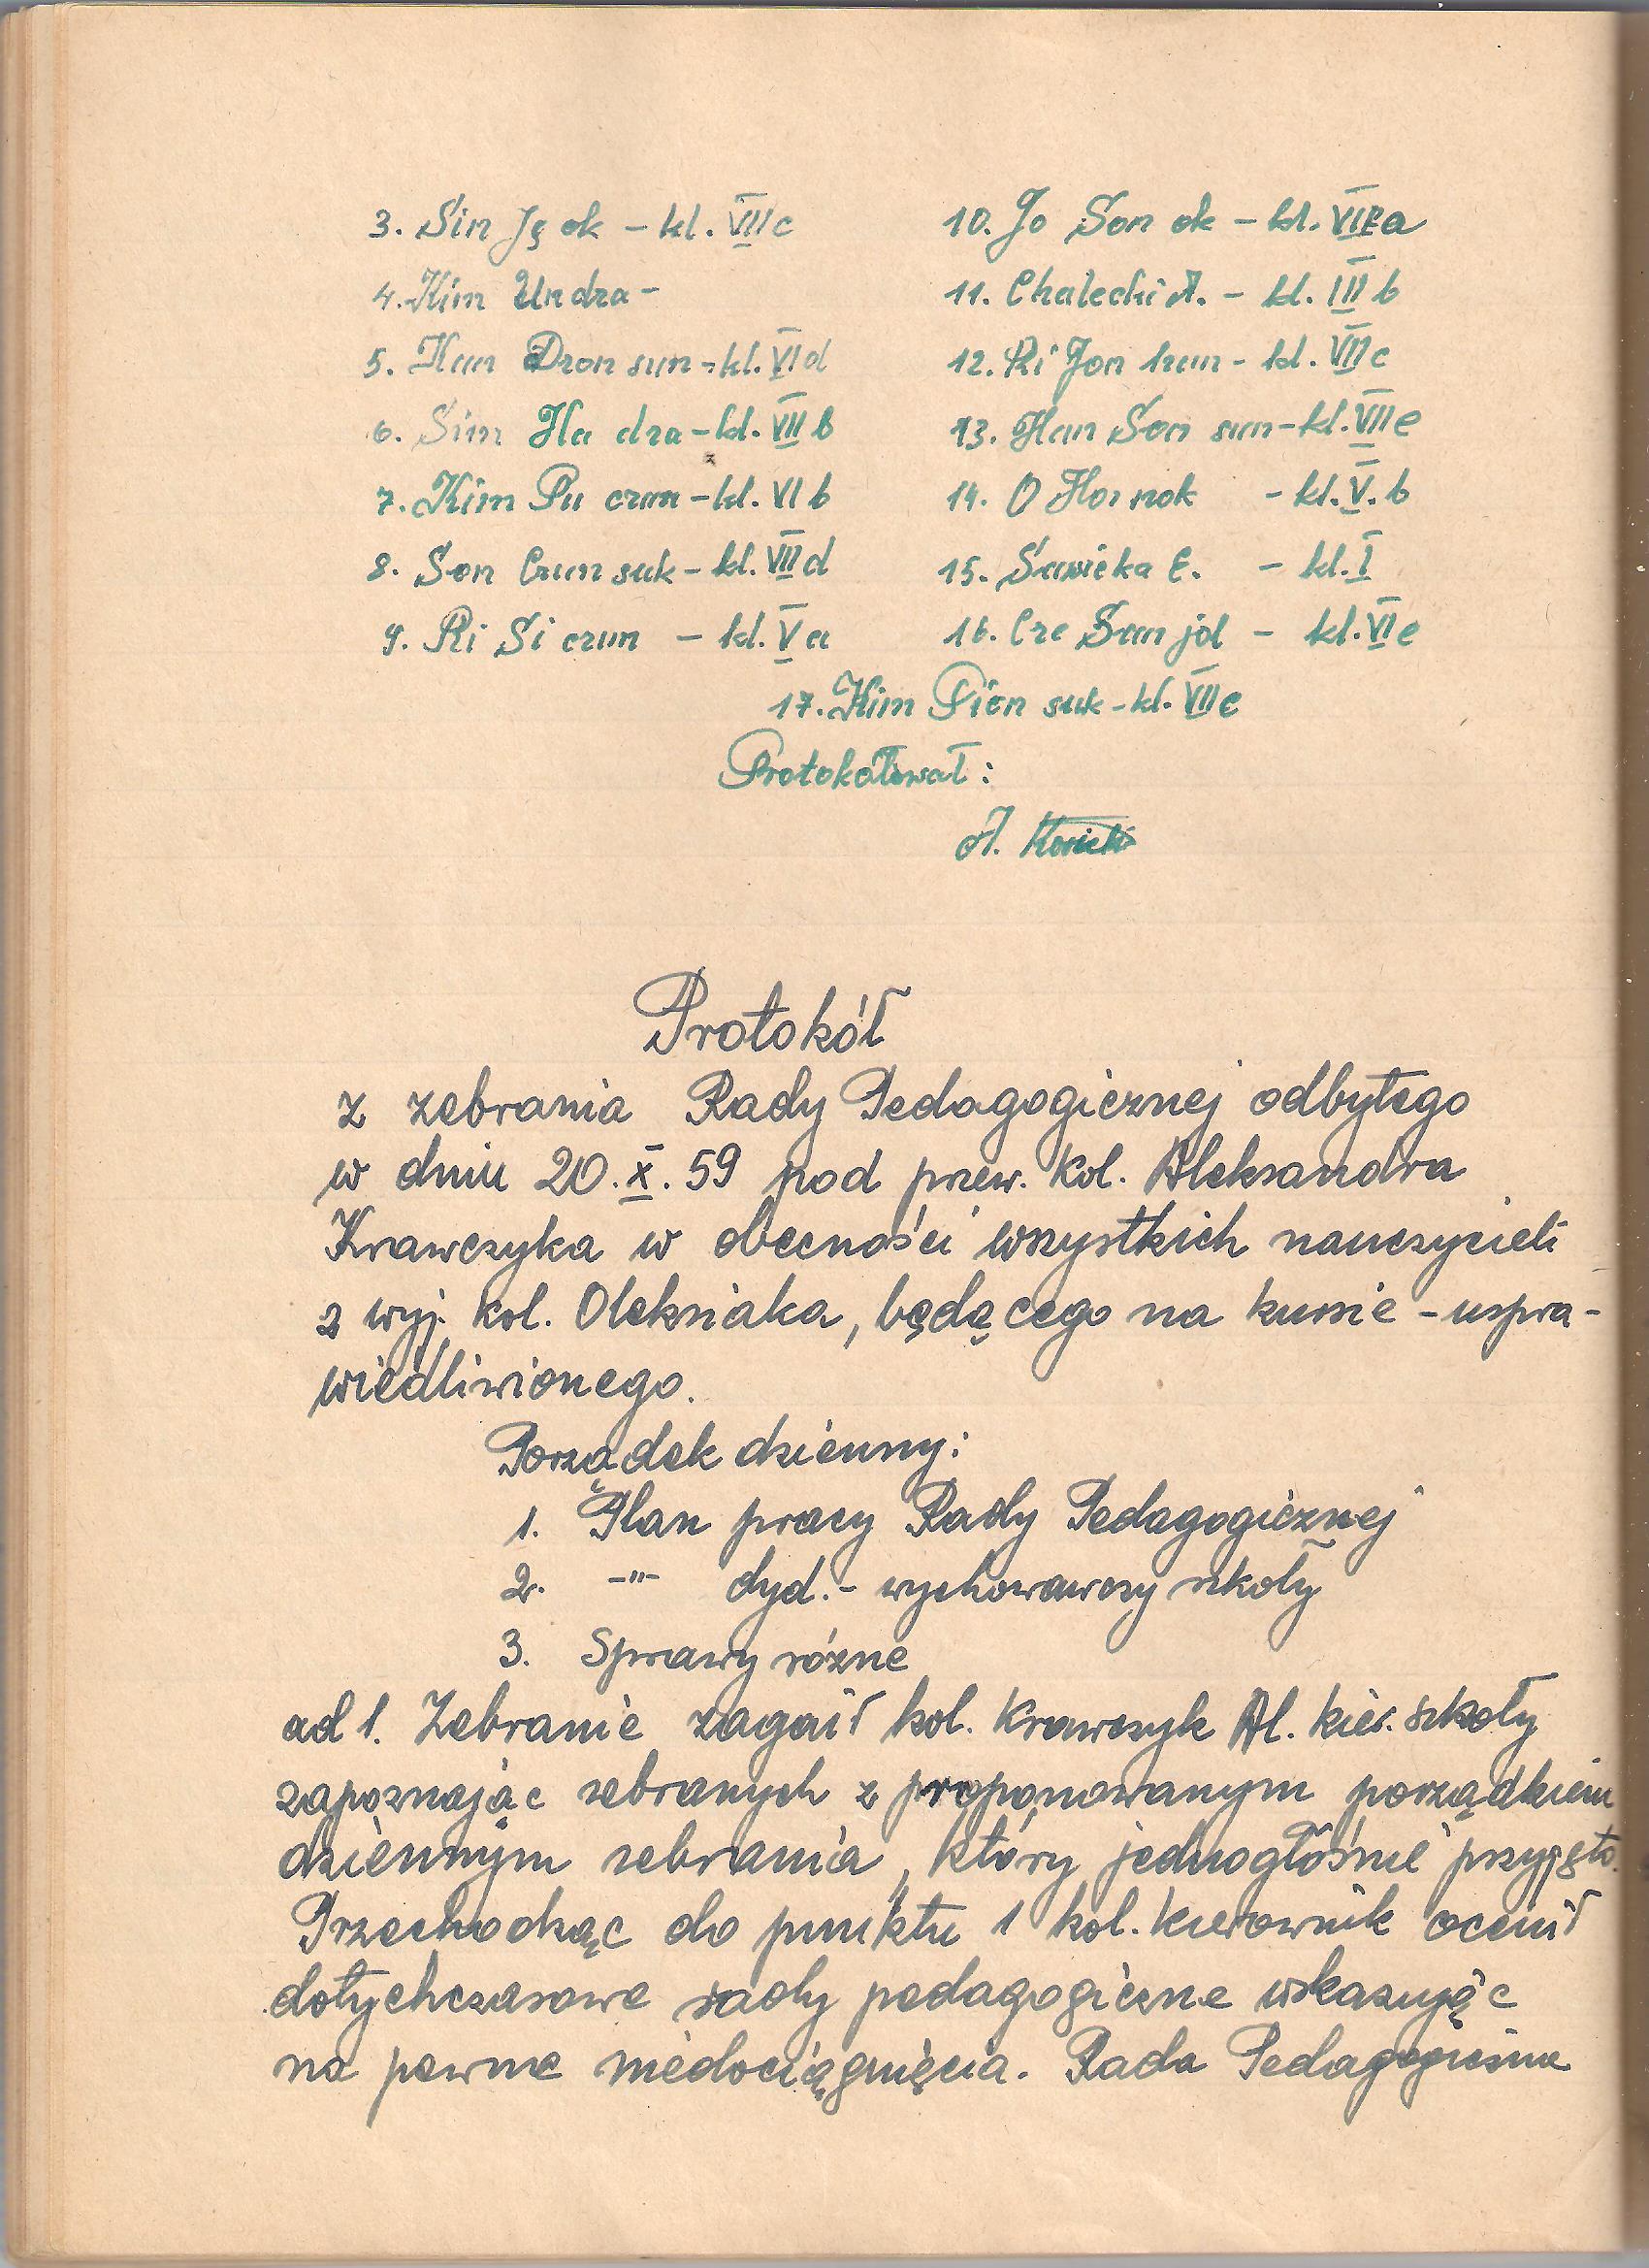 3. Sin Ję ok - kl. VIIc
4. Kim Un dza -
5. Kan Dzon sun - kl. VId
6. Sim Ha dza - kl. VIIb
7. Kim Pu czun - kl. VIb
8. Son Czun suk - kl. VIId
9. Ri Si czun - kl. Va
10. Jo Son ok - kl. VIIa
11. Chalecki A. - kl. IIIb
12. Ri Jon hun - kl. VIIc
13. Han Son sun - kl. VIIe
14. O Hon nok - kl. V.b
15. Sawicka E. - kl. I
16. Cze San jol - kl. VIe
17. Kim Pion suk - kl. VIIe
Protokółował:
A.
Protokół
z zebrania Rady Pedagogicznej odbytego
w dniu 20.X.59 pod przew. kol. Aleksandra
Krawczyka w obecności wszystkich nauczycieli
z wyj. kol. Oleksiaka, będącego na kursie - uspra-
wiedliwionego.
Porządek dzienny:
1. "Plan pracy Rady Pedagogicznej"
2. -"- dyd.- wychowawczy szkoły
3. Sprawy różne
ad 1. Zebranie zagaił kol. Krawczyk Al. kier. szkoły
zapoznając zebranych z proponowanym porządkiem
dziennym zebrania, który jednogłośnie przyjęto.
Przechodząc do punktu 1 kol. kierownik ocenił
dotychczasowe rady pedagogiczne wskazując
na pewne niedociągnięcia. Rada Pedagogiczna